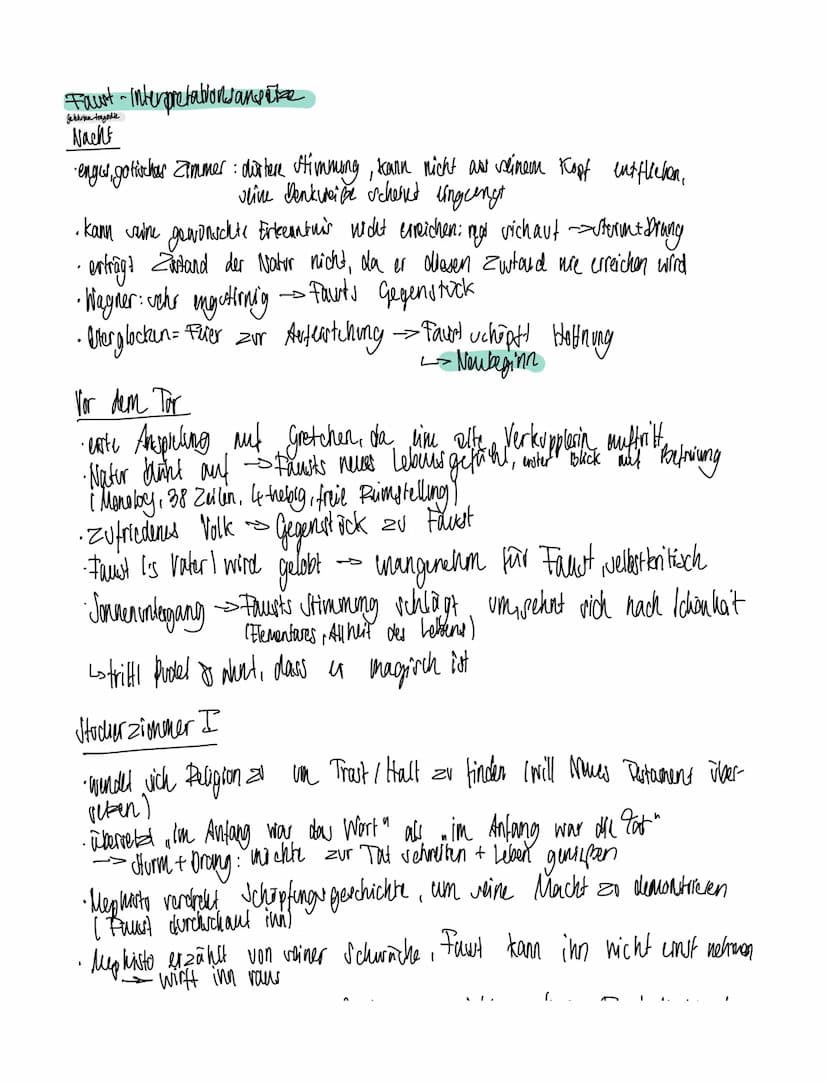 Faust - Interpretationsansätze
Gelehrtentragödie
Nacht
· enges, gotisches Zimmer : düstere Stimmung, kann nicht aus seinem Kopf entfliehen,
seine Denkweise scheint eingeengt
· kann seine gewünschte Erkenntnis nicht erreichen: regt sich auf → Sturm + Drang
· erträgt Zustand der Natur nicht, da er diesen Zustand nie erreichen wird
· Wagner: sehr engstirnig → Fausts Gegenstück
· Osterglocken = Feier zur Auferstehung → Faust schöpft Hoffnung
↳ Neubeginn
Vor dem Tor
· erste Anspielung auf Gretchen, da eine alte Verkupplerin auftritt
· Natur blüht auf → Fausts neues Lebensgefühl, erster Blick auf Befreiung
(Monolog, 38 Zeilen, 4-hebig, freie Reimstellung)
· zufriedenes Volk → Gegenstück zu Faust
· Faust ('s Vater) wird gelobt → unangenehm für Faust, selbstkritisch
· Sonnenuntergang → Fausts Stimmung schlägt um, sehnt sich nach Schönheit
(Elementares, Allheit des Lebens)
↳ trifft Pudel & ahnt, dass er magisch ist
Studierzimmer I
· wendet sich Religion zu um Trost / Halt zu finden (will Neues Testament über-
setzen)
· übersetzt „im Anfang war das Wort" als „im Anfang war die Tat"
→ Sturm + Drang: möchte zur Tat schreiten + Leben genießen
· Mephisto verdreht Schöpfungsgeschichte, um seine Macht zu demonstrieren
(Faust durchschaut ihn)
· Mephisto erzählt von seiner Schwäche, Faust kann ihn nicht ernst nehmen
→ wirft ihn raus